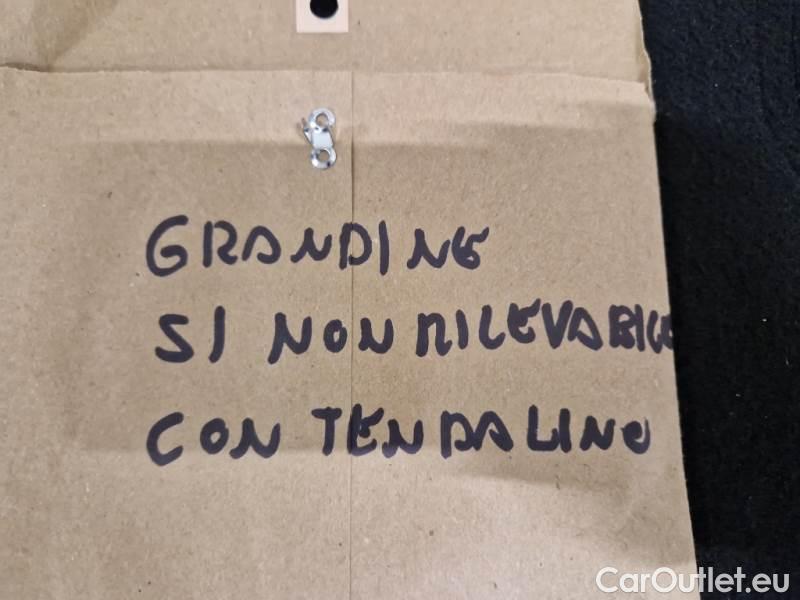 GRANDINE
SI NON RILEVABILE
CON TENDALINO
CarOutlet.eu